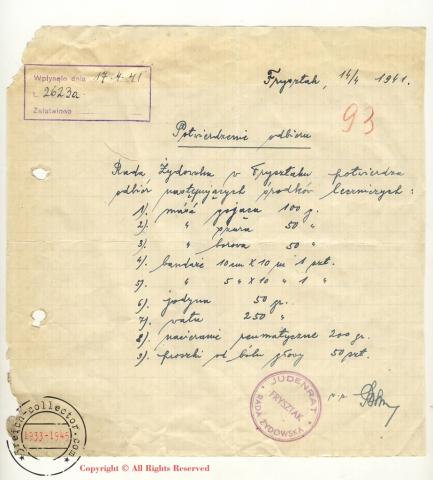 Wpłynęło dnia 17.4.41
L. 2623a
Załatwiono
Frysztak, 14/4 1941.
93
Potwierdzenie odbioru
Rada Żydowska w Frysztaku potwierdza
odbiór następujących środków leczniczych:
1). maść gojąca 100 g.
2). " szara 50 "
3). " borowa 50 "
4). bandaż 10 cm X 10 m 1 szt.
5). " 5 " X 10 " 1 "
6). jodyna 50 gr.
7). wata 250 "
8). nacieranie reumatyczne 200 gr.
9). proszki od bólu głowy 50 szt.
JUDENRAT
FRYSZTAK
RADA ŻYDOWSKA
reich-collector.com
1933-1945
Copyright © All Rights Reserved